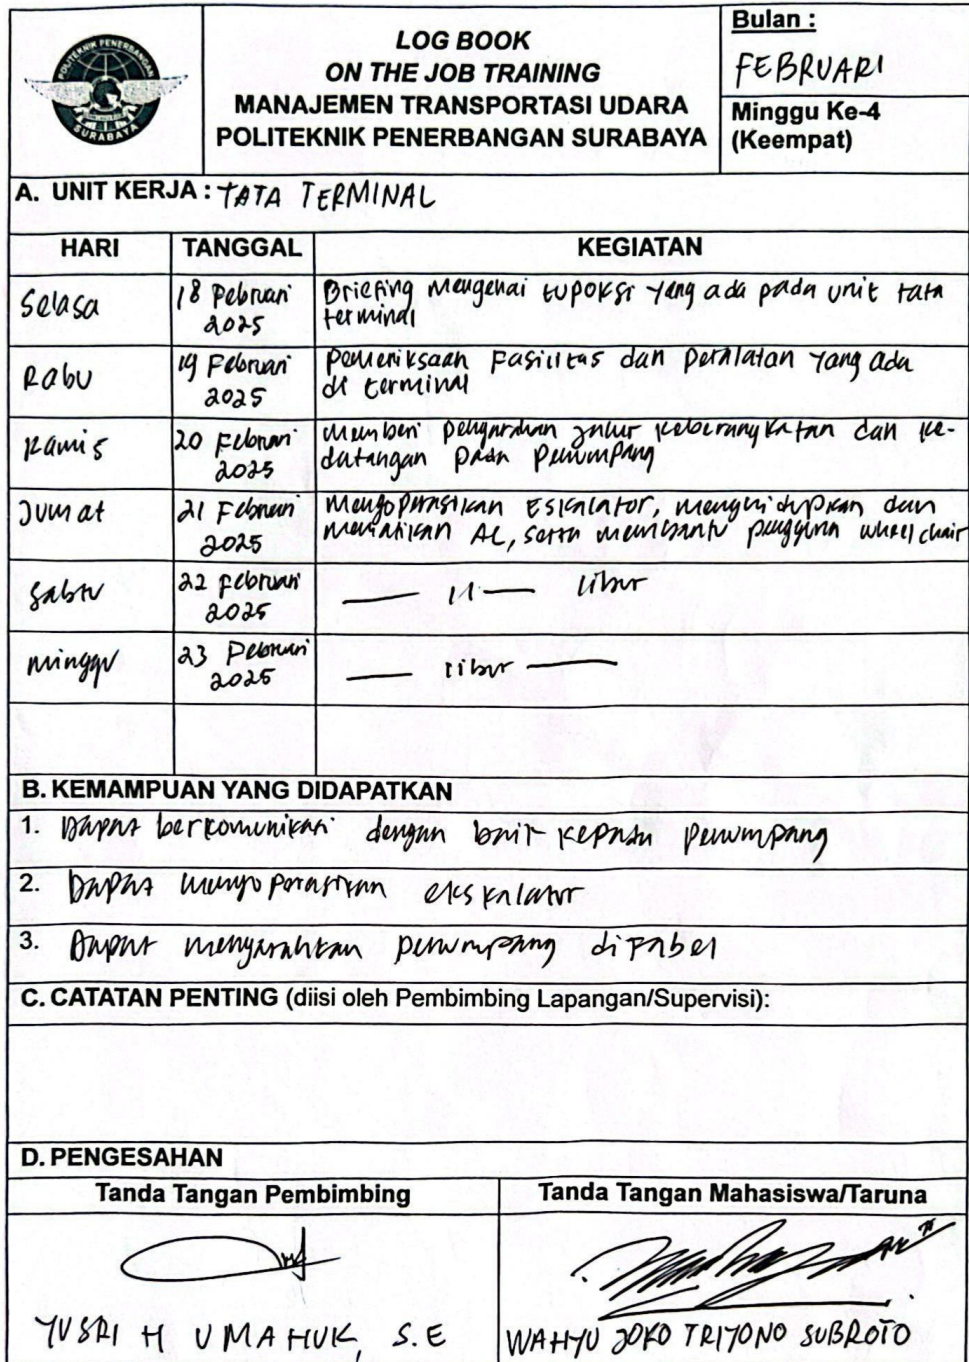 POLITEKNIK PENERBANGAN
SURABAYA
LOG BOOK
ON THE JOB TRAINING
MANAJEMEN TRANSPORTASI UDARA
POLITEKNIK PENERBANGAN SURABAYA
Bulan :
FEBRUARI
Minggu Ke-4
(Keempat)
A. UNIT KERJA : TATA TERMINAL
HARI TANGGAL KEGIATAN
Selasa 18 Februari 2025 Briefing mengenai tupoksi yang ada pada unit tata
terminal
Rabu 19 Februari 2025 Pemeriksaan Fasilitas dan peralatan yang ada
di terminal
Kamis 20 Februari 2025 memberi pengarahan jalur keberangkatan dan ke-
datangan pada penumpang
Jumat 21 Februari 2025 Mengoperasikan Eskalator, menghidupkan dan
mematikan AC, serta membantu pengguna wheelchair
Sabtu 22 Februari 2025 libur
Minggu 23 Februari 2025 libur
B. KEMAMPUAN YANG DIDAPATKAN
1. Dapat berkomunikasi dengan baik kepada penumpang
2. Dapat mengoperasikan ekskalator
3. Dapat mengarahkan penumpang difabel
C. CATATAN PENTING (diisi oleh Pembimbing Lapangan/Supervisi):
D. PENGESAHAN
Tanda Tangan Pembimbing Tanda Tangan Mahasiswa/Taruna
YUSRI H UMAHUK, S.E WAHYU JOKO TRIYONO SUBROTO